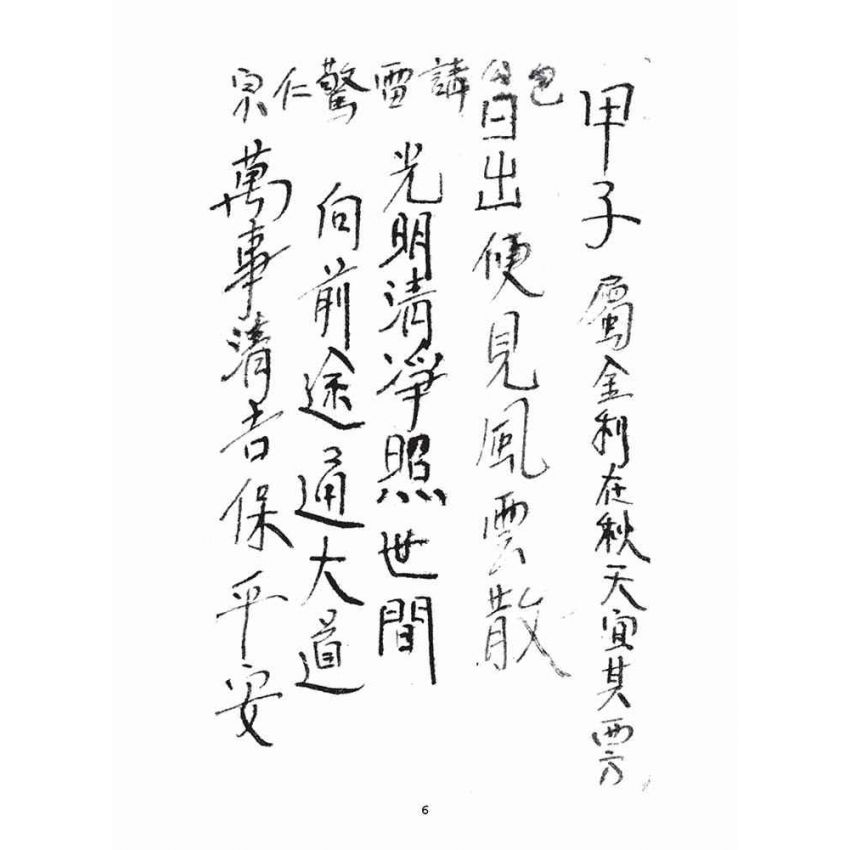 甲子 屬金利在秋天宜其西方
包公講雷驚仁宗
日出便見風雲散
光明清淨照世間
向前途通大道
萬事清吉保平安
6